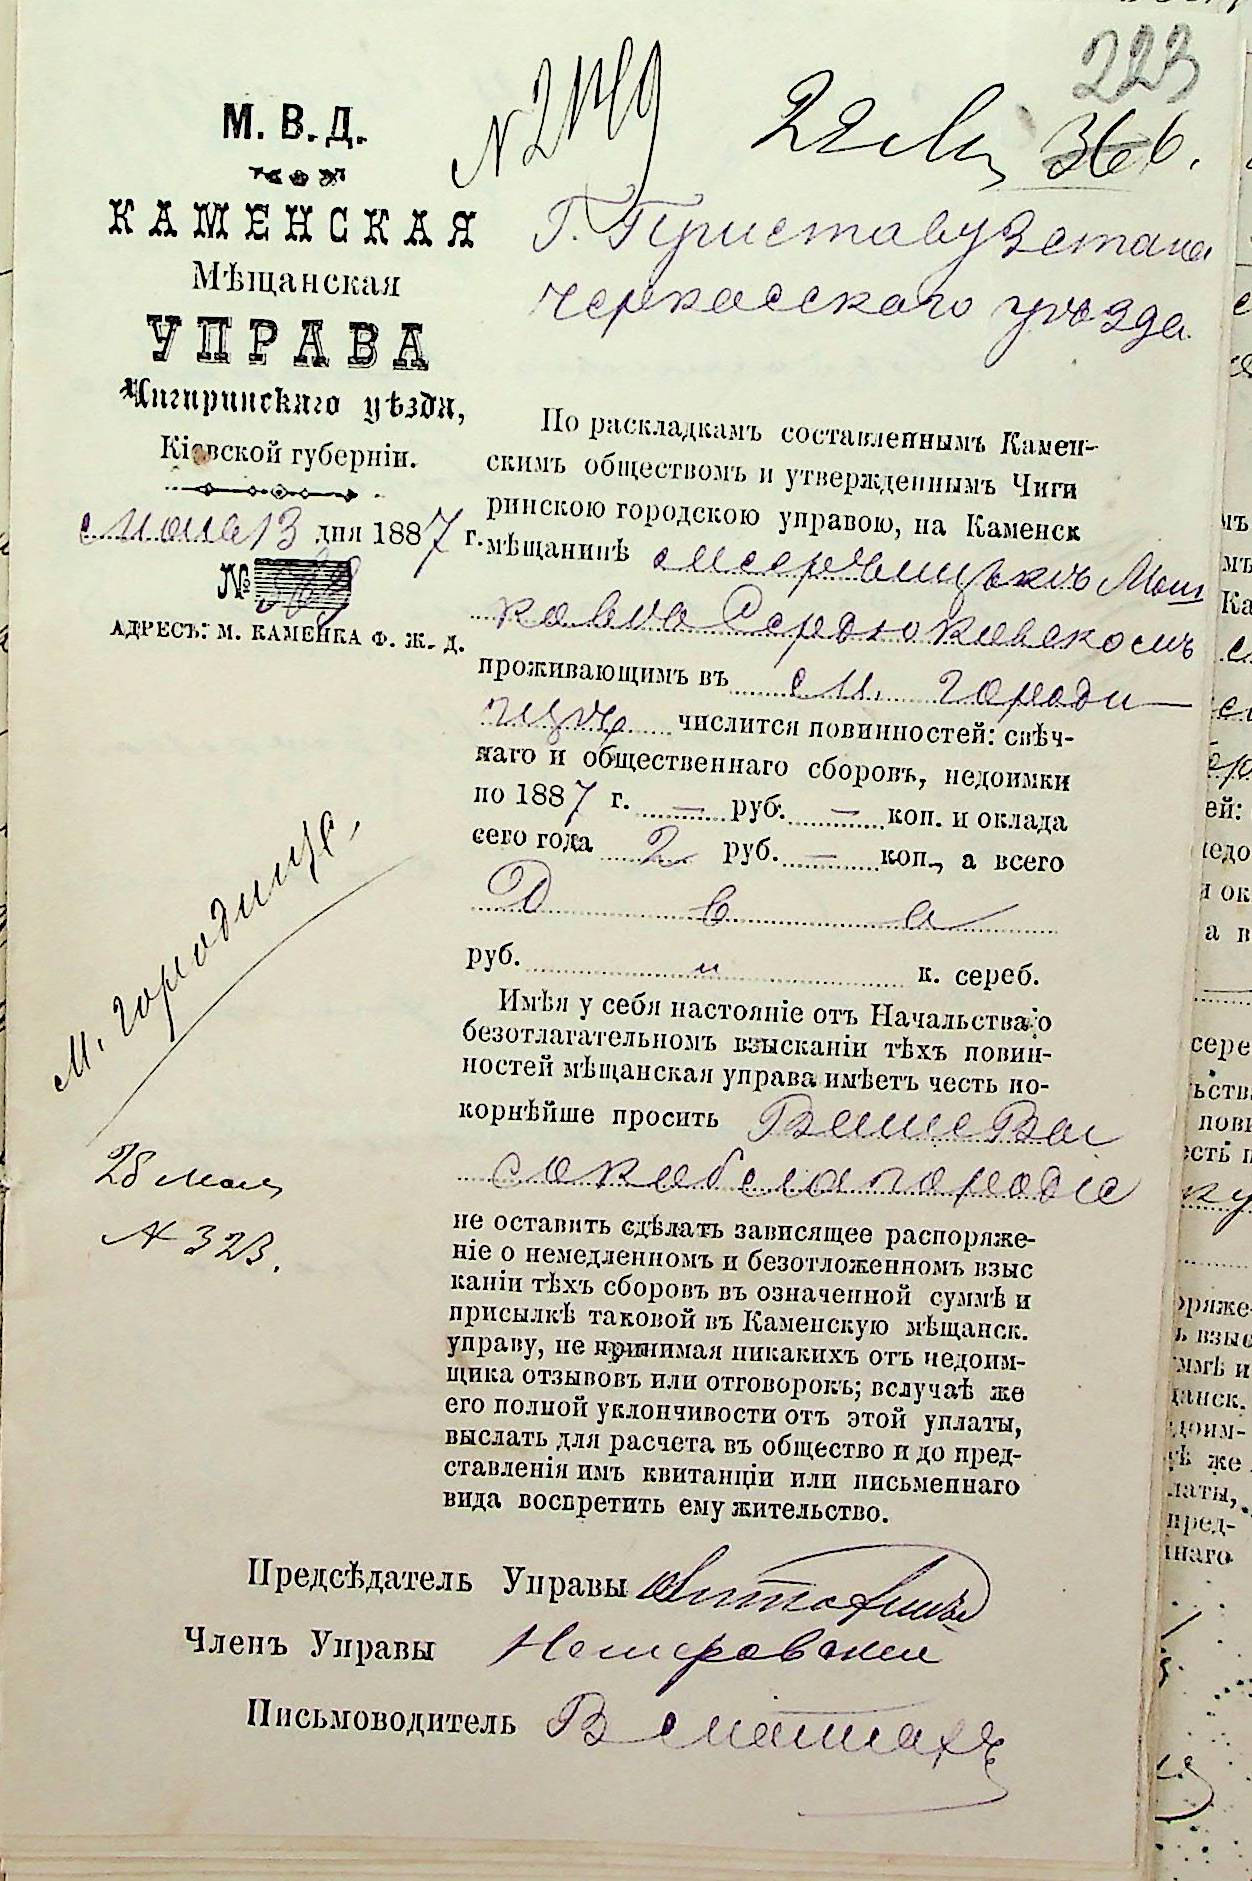 223
N 2149
22 Мая 366.
М. В. Д.
КАМЕНСКАЯ
Мѣщанская
УПРАВА
Чигиринскаго уѣзда,
Кіевской губерніи.
Мая 13 дня 1887 г.
№
АДРЕСЪ: М. КАМЕНКА Ф. Ж. Д.
Г. Приставу 3 стана
Черкасскаго уѣзда
По раскладкамъ составленнымъ Камен-
скимъ обществомъ и утвержденнымъ Чиги
ринскою городскою управою, на Каменск
мѣщанинѣ Мош
ковѣ Сердюковскомъ
проживающимъ въ м. Городи-
щѣ числится повинностей: свѣч-
наго и общественнаго сборовъ, недоимки
по 1887 г. — руб. — коп. и оклада
сего года 2 руб. — коп., а всего
Два
руб. " к. сереб.
Имѣя у себя настояніе отъ Начальства о
безотлагательномъ взысканіи тѣхъ повин-
ностей мѣщанская управа имѣетъ честь по-
корнѣйше просить Ваше Вы
сокоблагородіе
не оставить сдѣлать зависящее распоряже-
ніе о немедленномъ и безотложенномъ взыс
каніи тѣхъ сборовъ въ означенной суммѣ и
присылкѣ таковой въ Каменскую мѣщанск.
управу, не принимая никакихъ отъ недоим-
щика отзывовъ или отговорокъ; вслучаѣ же
его полной уклончивости отъ этой уплаты,
выслать для расчета въ общество и до пред-
ставленія имъ квитанціи или письменнаго
вида воспретить ему жительство.
м. Городище.
28 Мая
N 323.
Предсѣдатель Управы
Членъ Управы
Письмоводитель В